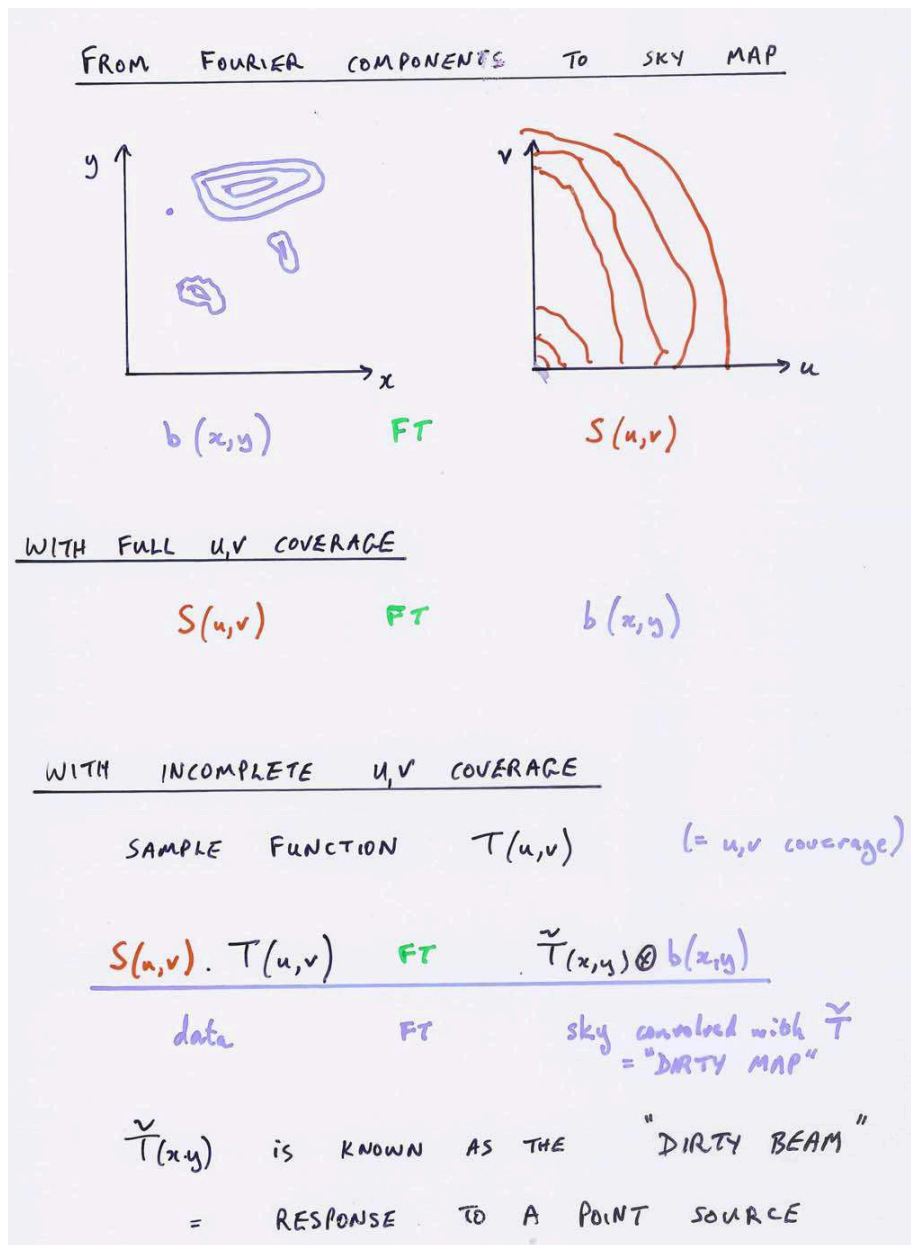 FROM FOURIER COMPONENTS TO SKY MAP
y
v
x
u
b (x,y) FT S(u,v)
WITH FULL u,v COVERAGE
S(u,v) FT b(x,y)
WITH INCOMPLETE u,v COVERAGE
SAMPLE FUNCTION T(u,v) (= u,v coverage)
S(u,v) . T(u,v) FT T̃(x,y) ⊗ b(x,y)
data FT sky convolved with T̃
= "DIRTY MAP"
T̃(x.y) is KNOWN AS THE "DIRTY BEAM"
= RESPONSE TO A POINT SOURCE